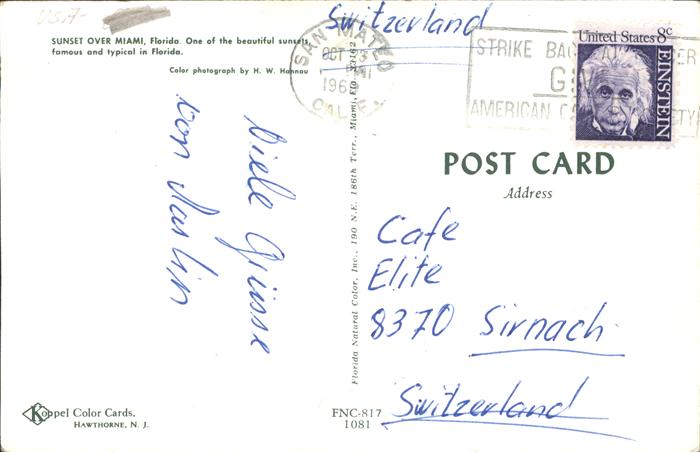 USA-
Switzerland
SUNSET OVER MIAMI, Florida. One of the beautiful sunsets,
famous and typical in Florida.
Color photograph by H. W. Hannau
SAN MATEO
OCT
PM
196
CALIF.
STRIKE BACK
AMERICAN
United States 8c
EINSTEIN
POST CARD
Address
Viele Grüsse
von
Florida Natural Color, Inc., 190 N.E. 186th Terr., Miami, Fla. 33162
Cafe
Elite
8370 Sirnach
Switzerland
Koppel Color Cards,
HAWTHORNE, N. J.
FNC-817
1081